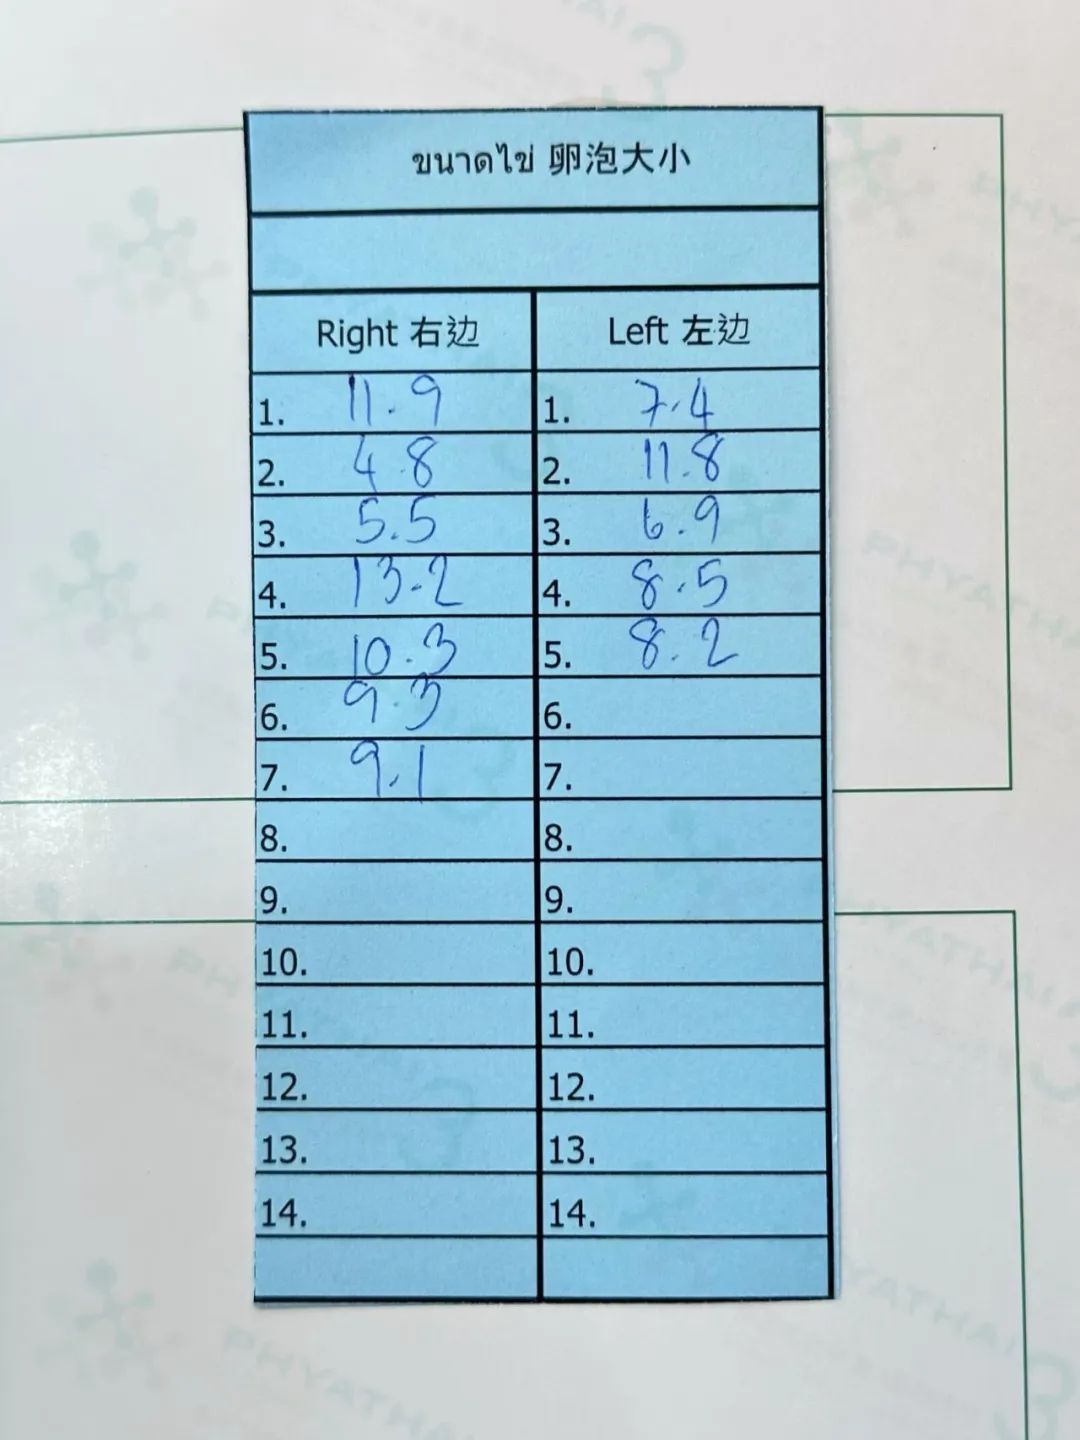 ขนาดไข่ 卵泡大小
Right 右边 Left 左边
1. 11.9 1. 7.4
2. 4.8 2. 11.8
3. 5.5 3. 6.9
4. 13.2 4. 8.5
5. 10.3 5. 8.2
6. 9.3 6.
7. 9.1 7.
8. 8.
9. 9.
10. 10.
11. 11.
12. 12.
13. 13.
14. 14.